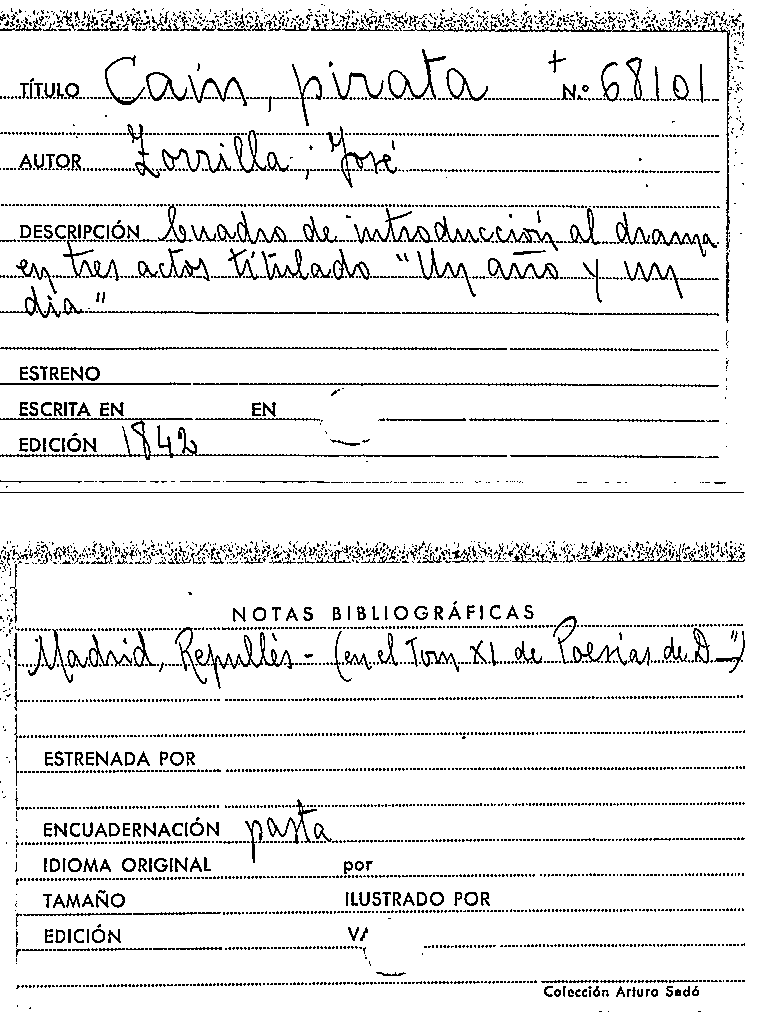 TÍTULO Cain, pirata + N.º 68101
AUTOR Zorrilla, José
DESCRIPCIÓN Cuadro de introducción al drama
en tres actos titulado "Un año y un
dia"
ESTRENO
ESCRITA EN EN
EDICIÓN 1842
NOTAS BIBLIOGRÁFICAS
Madrid, Repullés - (en el Tom XI de Poesías de D—")
ESTRENADA POR
ENCUADERNACIÓN pasta
IDIOMA ORIGINAL por
TAMAÑO ILUSTRADO POR
EDICIÓN
Colección Arturo Sedó